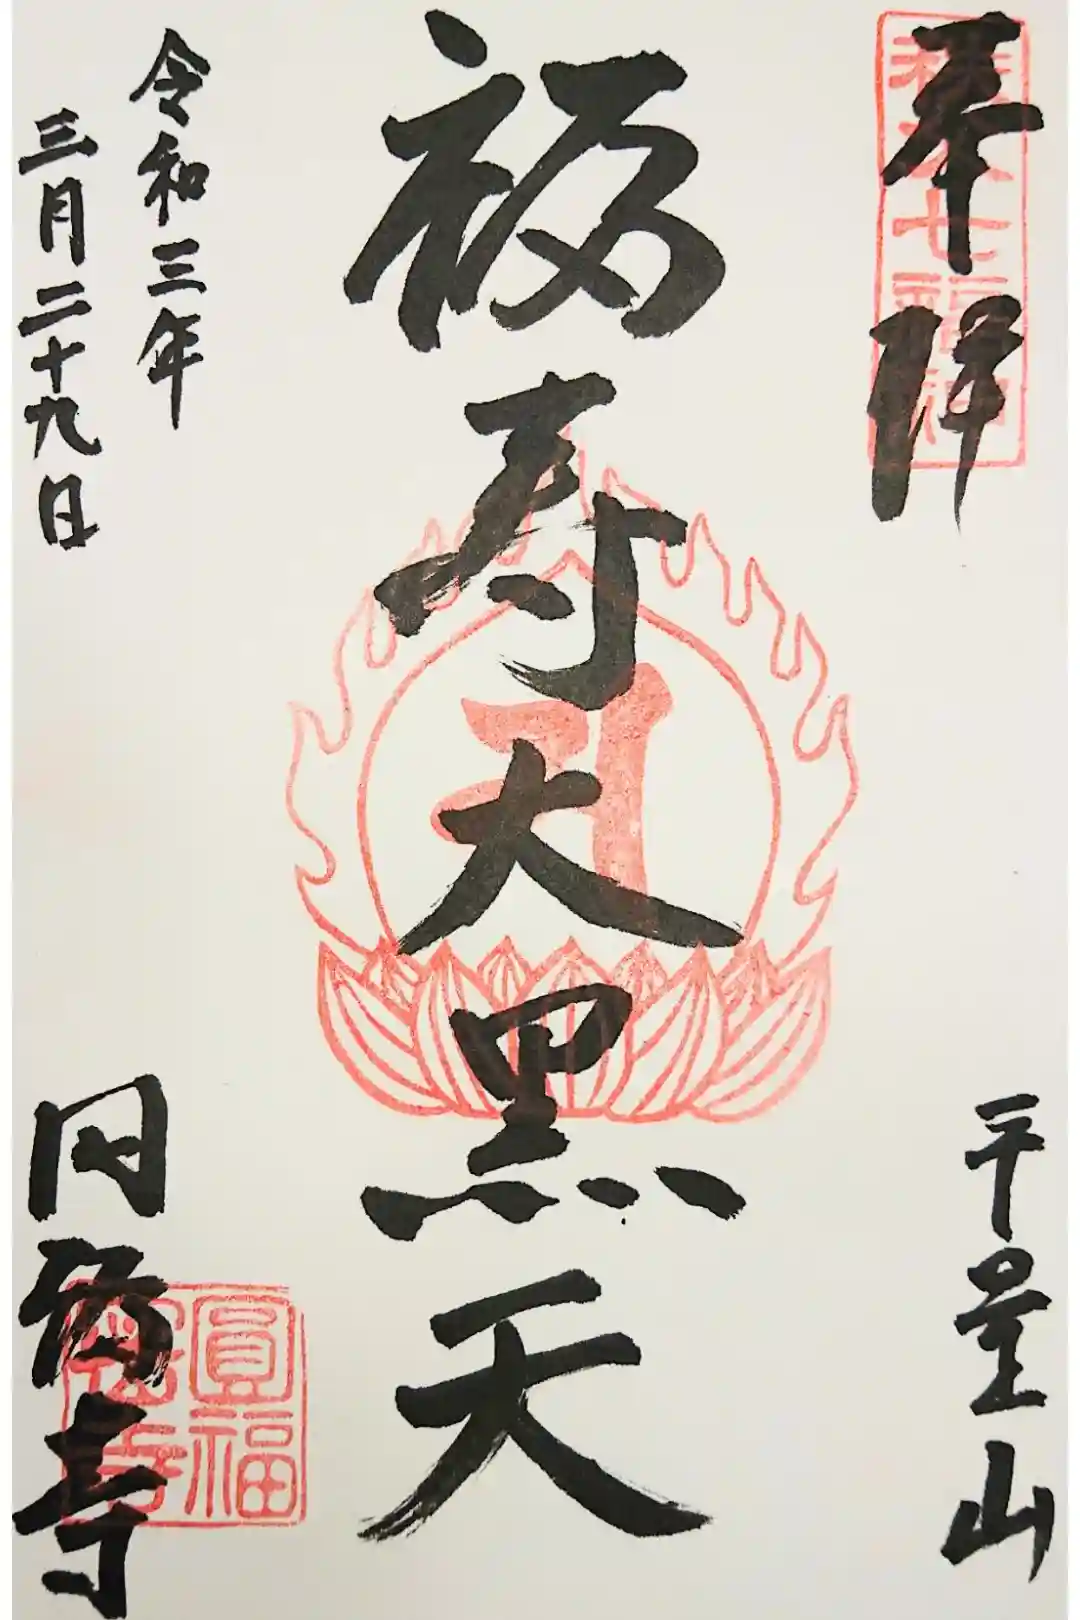 奉拝
七福神
千量山
福寿大黒天
令和三年
三月二十九日
円福寺
圓福
寺